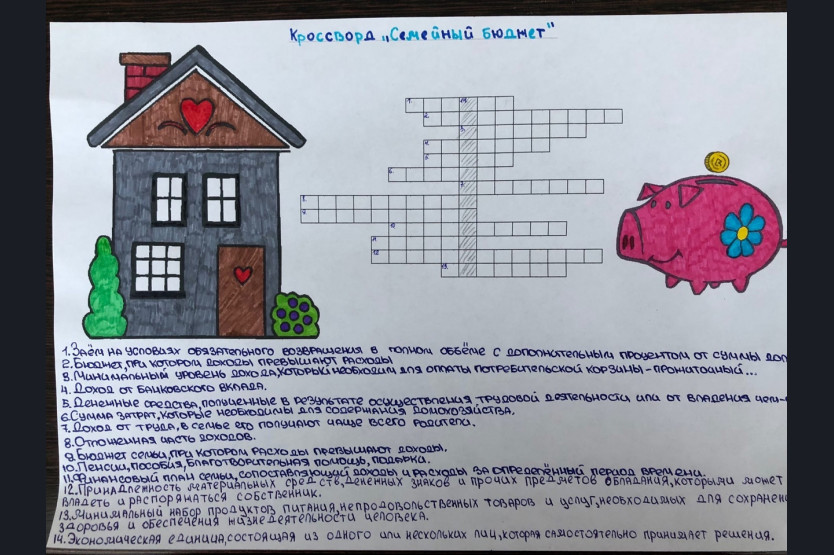 Кроссворд „Семейный бюджет"
1. 14.
2.
3.
4.
5.
6.
7.
8.
9.
10.
11.
12.
13.
1. Заём на условиях обязательного возвращения в полном объёме с дополнительным процентом от суммы
2. Бюджет, при котором доходы превышают расходы
3. Минимальный уровень дохода, который необходим для оплаты потребительской корзины - прожитодный...
4. Доход от банковского вклада.
5. Денежные средства, полученные в результате осуществления трудовой деятельности или от владения чем-
6. Сумма затрат, которые необходимы для содержания домохозяйства.
7. Доход от труда, в семье его получают чаще всего родители.
8. Отложенная часть доходов.
9. Бюджет семьи, при котором расходы превышают доходы.
10. Пенсии, пособия, благотворительная помощь, подарки.
11. Финансовый план семьи, сопоставляющий доходы и расходы за определённый период времени.
12. Принадлежность материальных средств, денежных знаков и прочих предметов обладания, которыми может
владеть и распоряжаться собственник.
13. Минимальный набор продуктов питания, непродовольственных товаров и услуг, необходимых для сохранен
здоровья и обеспечения жизнедеятельности человека.
14. Экономическая единица, состоящая из одного или нескольких лиц, которая самостоятельно принимает решения.